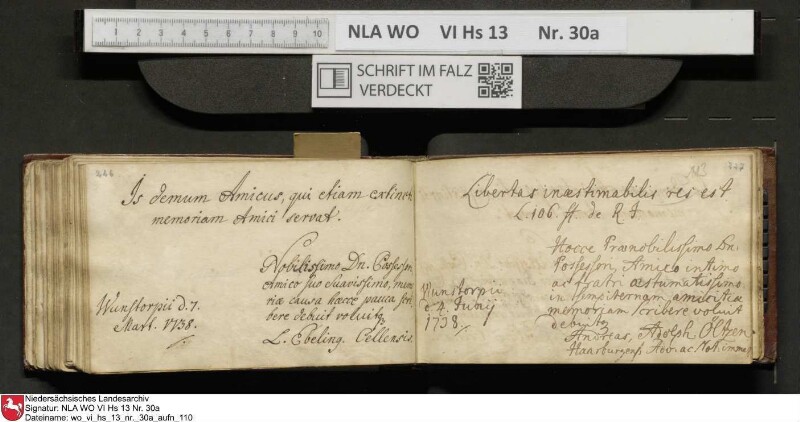 1 2 3 4 5 6 7 8 9 10
NLA WO VI Hs 13 Nr. 30a
SCHRIFT IM FALZ
VERDECKT
346
Is demum Amicus, qui etiam extincti
memoriam Amici servat.
Nobilissimo Dn. Possessori
Amico suo suavissimo, memo-
riæ causa hæcce pauca scri
bere debuit voluitq
L. Ebeling. Cellensis.
Wunstorpii d. 7.
Mart. 1738.
NB
Libertas inæstimabilis res est
L. 106. ff. de R J.
Hocce Prænobilissimo Dn.
Possessori, Amico intimo
ac fratri æstumatissimo
in sempiternam amicitiæ
memoriam scribere voluit
debuitq
Andreas, Adolph
Haarburgens. Adv. ac Not. imm.
Wunstorpii
d 4. Junij
1738.
Niedersächsisches Landesarchiv
Signatur: NLA WO VI Hs 13 Nr. 30a
Dateiname: wo_vi_hs_13_nr._30a_aufn_110